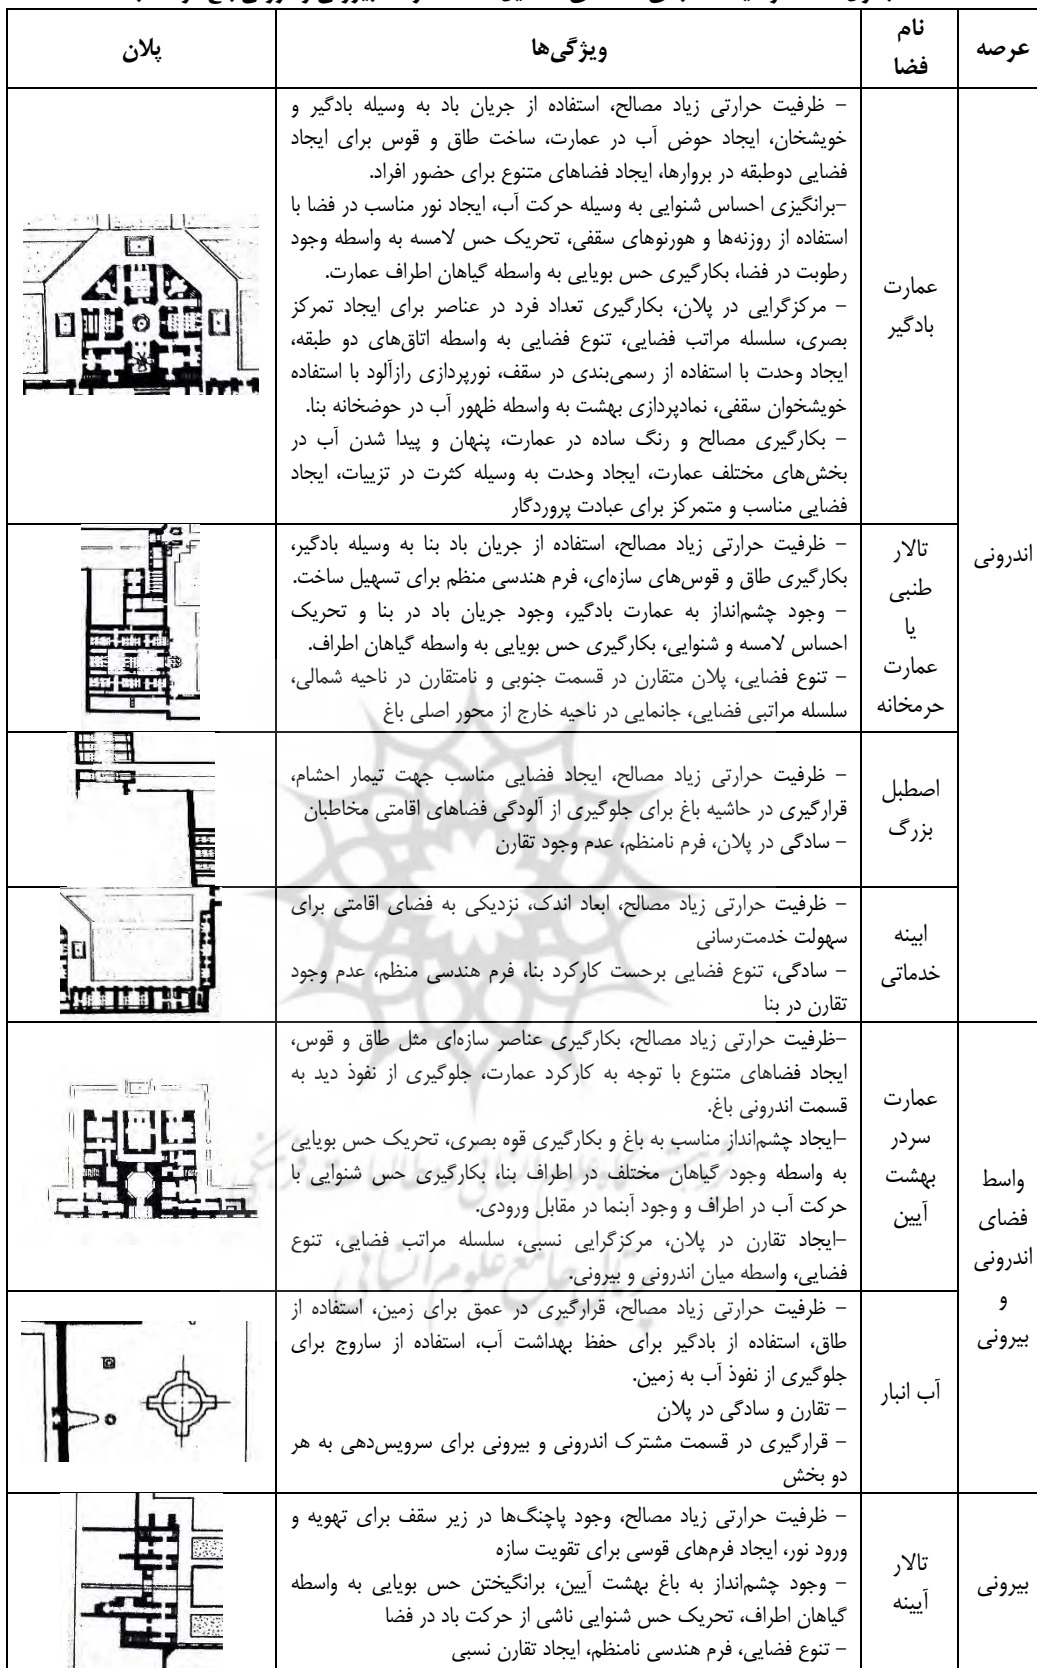 عرصه
نام
فضا
ویژگی‌ها
پلان
اندرونی
عمارت
بادگیر
- ظرفیت حرارتی زیاد مصالح، استفاده از جریان باد به وسیله بادگیر و
خویشخان، ایجاد حوض آب در عمارت، ساخت طاق و قوس برای ایجاد
فضایی دوطبقه در بروارها، ایجاد فضاهای متنوع برای حضور افراد.
-برانگیزی احساس شنوایی به وسیله حرکت آب، ایجاد نور مناسب در فضا با
استفاده از روزنه‌ها و هورنوهای سقفی، تحریک حس لامسه به واسطه وجود
رطوبت در فضا، بکارگیری حس بویایی به واسطه گیاهان اطراف عمارت.
- مرکزگرایی در پلان، بکارگیری تعداد فرد در عناصر برای ایجاد تمرکز
بصری، سلسله مراتب فضایی، تنوع فضایی به واسطه اتاق‌های دو طبقه،
ایجاد وحدت با استفاده از رسمی‌بندی در سقف، نورپردازی رازآلود با استفاده
خویشخوان سقفی، نمادپردازی بهشت به واسطه ظهور آب در حوضخانه بنا.
- بکارگیری مصالح و رنگ ساده در عمارت، پنهان و پیدا شدن آب در
بخش‌های مختلف عمارت، ایجاد وحدت به وسیله کثرت در تزیبات، ایجاد
فضایی مناسب و متمرکز برای عبادت پروردگار
تالار
طنبی
یا
عمارت
حرمخانه
- ظرفیت حرارتی زیاد مصالح، استفاده از جریان باد بنا به وسیله بادگیر،
بکارگیری طاق و قوس‌های سازه‌ای، فرم هندسی منظم برای تسهیل ساخت.
- وجود چشم‌انداز به عمارت بادگیر، وجود جریان باد در بنا و تحریک
احساس لامسه و شنوایی، بکارگیری حس بویایی به واسطه گیاهان اطراف.
- تنوع فضایی، پلان متقارن در قسمت جنوبی و نامتقارن در ناحیه شمالی،
سلسله مراتبی فضایی، جانمایی در ناحیه خارج از محور اصلی باغ
اصطبل
بزرگ
- ظرفیت حرارتی زیاد مصالح، ایجاد فضایی مناسب جهت تیمار احشام،
قرارگیری در حاشیه باغ برای جلوگیری از آلودگی فضاهای اقامتی مخاطبان
- سادگی در پلان، فرم نامنظم، عدم وجود تقارن
ابینه
خدماتی
- ظرفیت حرارتی زیاد مصالح، ابعاد اندک، نزدیکی به فضای اقامتی برای
سهولت خدمت‌رسانی
- سادگی، تنوع فضایی برحست کارکرد بنا، فرم هندسی منظم، عدم وجود
تقارن در بنا
واسط
فضای
اندرونی
و
بیرونی
عمارت
سردر
بهشت
آیین
-ظرفیت حرارتی زیاد مصالح، بکارگیری عناصر سازه‌ای مثل طاق و قوس،
ایجاد فضاهای متنوع با توجه به کارکرد عمارت، جلوگیری از نفوذ دید به
قسمت اندرونی باغ.
-ایجاد چشم‌انداز مناسب به باغ و بکارگیری قوه بصری، تحریک حس بویایی
به واسطه وجود گیاهان مختلف در اطراف بنا، بکارگیری حس شنوایی با
حرکت آب در اطراف و وجود آبنما در مقابل ورودی.
-ایجاد تقارن در پلان، مرکزگرایی نسبی، سلسله مراتب فضایی، تنوع
فضایی، واسطه میان اندرونی و بیرونی.
آب انبار
- ظرفیت حرارتی زیاد مصالح، قرارگیری در عمق برای زمین، استفاده از
طاق، استفاده از بادگیر برای حفظ بهداشت آب، استفاده از ساروج برای
جلوگیری از نفوذ آب به زمین.
- تقارن و سادگی در پلان
- قرارگیری در قسمت مشترک اندرونی و بیرونی برای سرویس‌دهی به هر
دو بخش
بیرونی
تالار
آیینه
- ظرفیت حرارتی زیاد مصالح، وجود پاچنگ‌ها در زیر سقف برای تهویه و
ورود نور، ایجاد فرم‌های قوسی برای تقویت سازه
- وجود چشم‌انداز به باغ بهشت آیین، برانگیختن حس بویایی به واسطه
گیاهان اطراف، تحریک حس شنوایی ناشی از حرکت باد در فضا
- تنوع فضایی، فرم هندسی نامنظم، ایجاد تقارن نسبی
پرتال جامع علوم انسانی